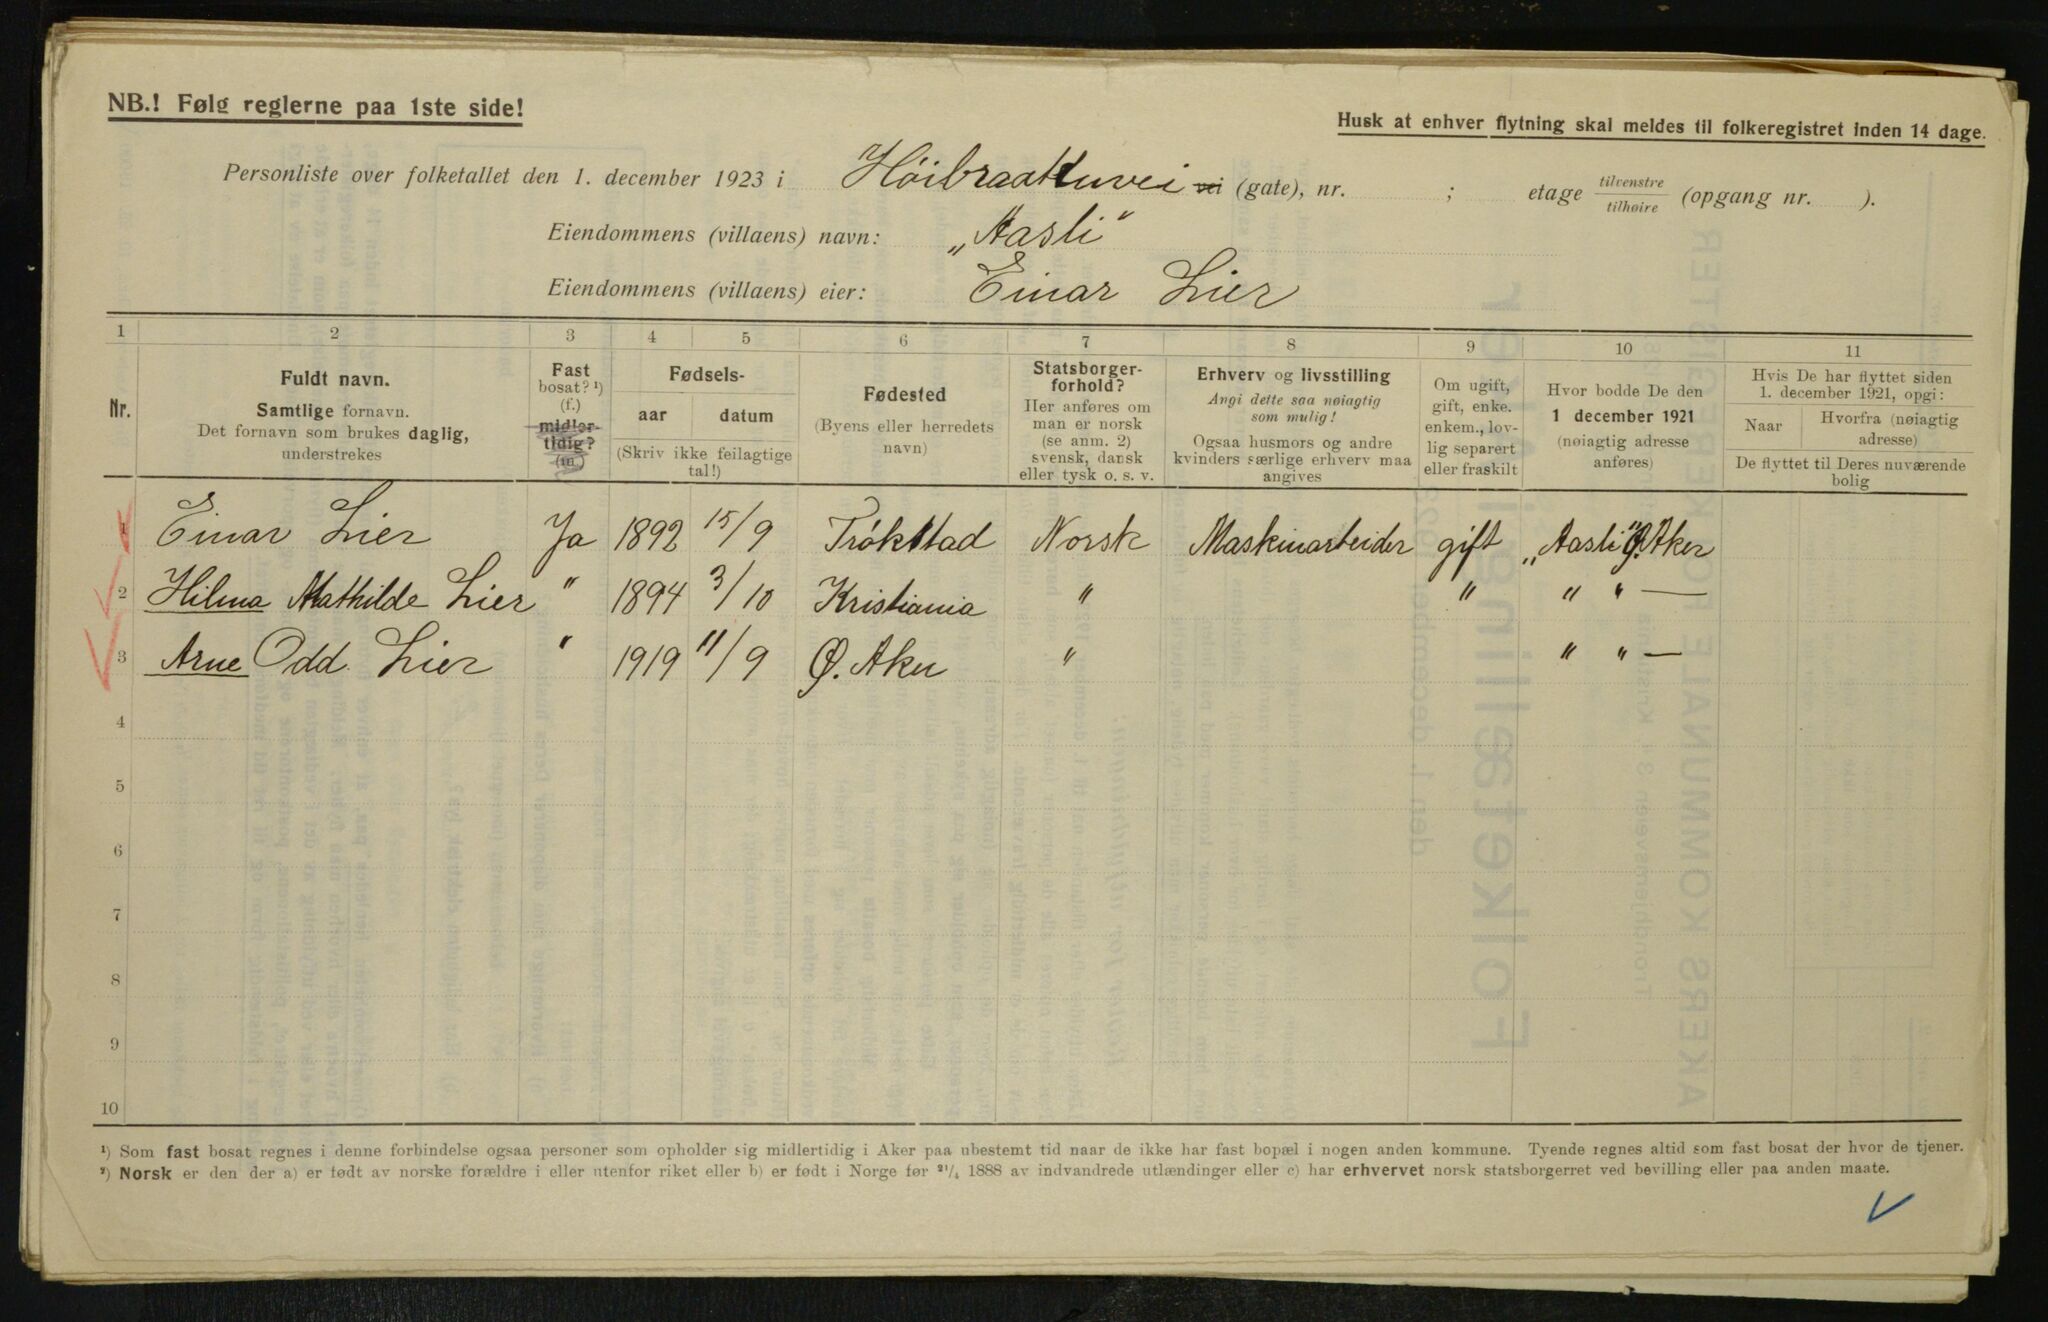 NB.! Følg reglerne paa 1ste side!
Husk at enhver flytning skal meldes til folkeregistret inden 14 dage.
Personliste over folketallet den 1. december 1923 i Høibraattenvei vei (gate), nr. ; etage tilvenstre/tilhøire (opgang nr. ).
Eiendommens (villaens) navn: „Aasli"
Eiendommens (villaens) eier: Einar Lier
1 2 3 4 5 6 7 8 9 10 11
Nr.
Fuldt navn.
Samtlige fornavn.
Det fornavn som brukes daglig,
understrekes
Fast
bosat? ¹)
(f.)
midler-
tidig?
(m.)
Fødsels-
aar datum
(Skriv ikke feilagtige
tal!)
Fødested
(Byens eller herredets
navn)
Statsborger-
forhold?
Her anføres om
man er norsk
(se anm. 2)
svensk, dansk
eller tysk o. s. v.
Erhverv og livsstilling
Angi dette saa nøiagtig
som mulig!
Ogsaa husmors og andre
kvinders særlige erhverv maa
angives
Om ugift,
gift, enke.
enkem., lov-
lig separert
eller fraskilt
Hvor bodde De den
1 december 1921
(nøiagtig adresse
anføres)
Hvis De har flyttet siden
1. december 1921, opgi:
Naar Hvorfra (nøiagtig
adresse)
De flyttet til Deres nuværende
bolig
1 Einar Lier Ja 1892 15/9 Trøkstad Norsk Maskinarbeider gift „Aasli" Ø. Aker
2 Hilma Mathilde Lier " 1894 3/10 Kristiania " " " " —
3 Arne Odd Lier " 1919 11/9 Ø. Aker " " " —
4
5
6
7
8
9
10
¹) Som fast bosat regnes i denne forbindelse ogsaa personer som opholder sig midlertidig i Aker paa ubestemt tid naar de ikke har fast bopæl i nogen anden kommune. Tyende regnes altid som fast bosat der hvor de tjener.
²) Norsk er den der a) er født av norske forældre i eller utenfor riket eller b) er født i Norge før ²¹/₄ 1888 av indvandrede utlændinger eller c) har erhvervet norsk statsborgerret ved bevilling eller paa anden maate.